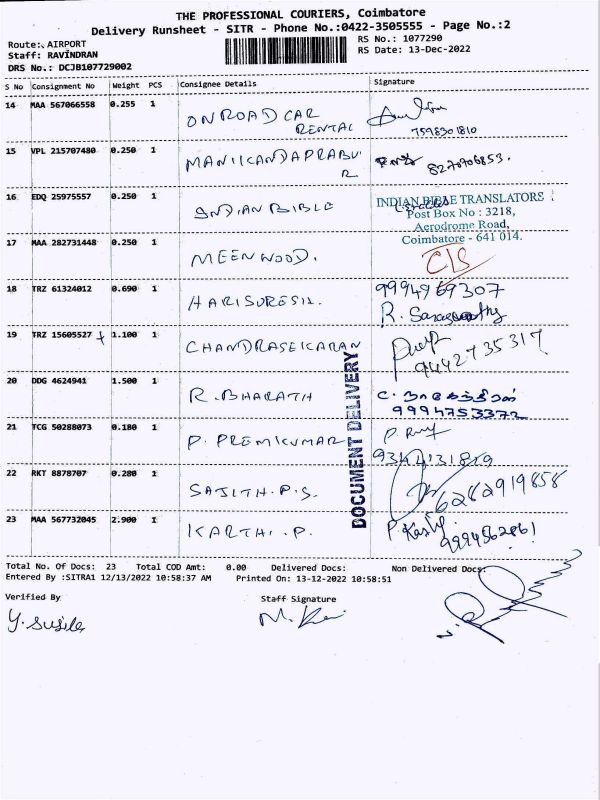 THE PROFESSIONAL COURIERS, Coimbatore
Delivery Runsheet - SITR - Phone No.:0422-3505555 - Page No.:2
Route: AIRPORT
RS No.: 1077290
Staff: RAVINDRAN
RS Date: 13-Dec-2022
DRS No.: DCJB107729002
S No Consignment No Weight PCS Consignee Details Signature
14 MAA 567066558 0.255 1 ON ROAD CAR RENTAL
7598301810
15 VPL 215707480 0.250 1 MANIKANDAPRABU R
8270706853.
16 EDQ 25975557 0.250 1 INDIAN BIBLE
INDIAN BIBLE TRANSLATORS
Post Box No : 3218,
Aerodrome Road,
Coimbatore - 641 014.
17 MAA 282731448 0.250 1 MEENWOOD. C/S
18 TRZ 61324012 0.690 1 HARISURESH. 9994969307
R.
19 TRZ 15605527 1.100 1 CHANDRASEKARAN
9442735317
20 DDG 4624941 1.500 1 R. BHARATH
9994753372
21 TCG 50288073 0.180 1 P. PREMKUMAR
22 RKT 8878707 0.280 1 SAJITH. P.S. 6282919858
23 MAA 567732045 2.900 1 KARTHI. P.
DOCUMENT DELIVERY
Total No. Of Docs: 23 Total COD Amt: 0.00 Delivered Docs: Non Delivered Docs:
Entered By :SITRA1 12/13/2022 10:58:37 AM Printed On: 13-12-2022 10:58:51
Verified By Staff Signature